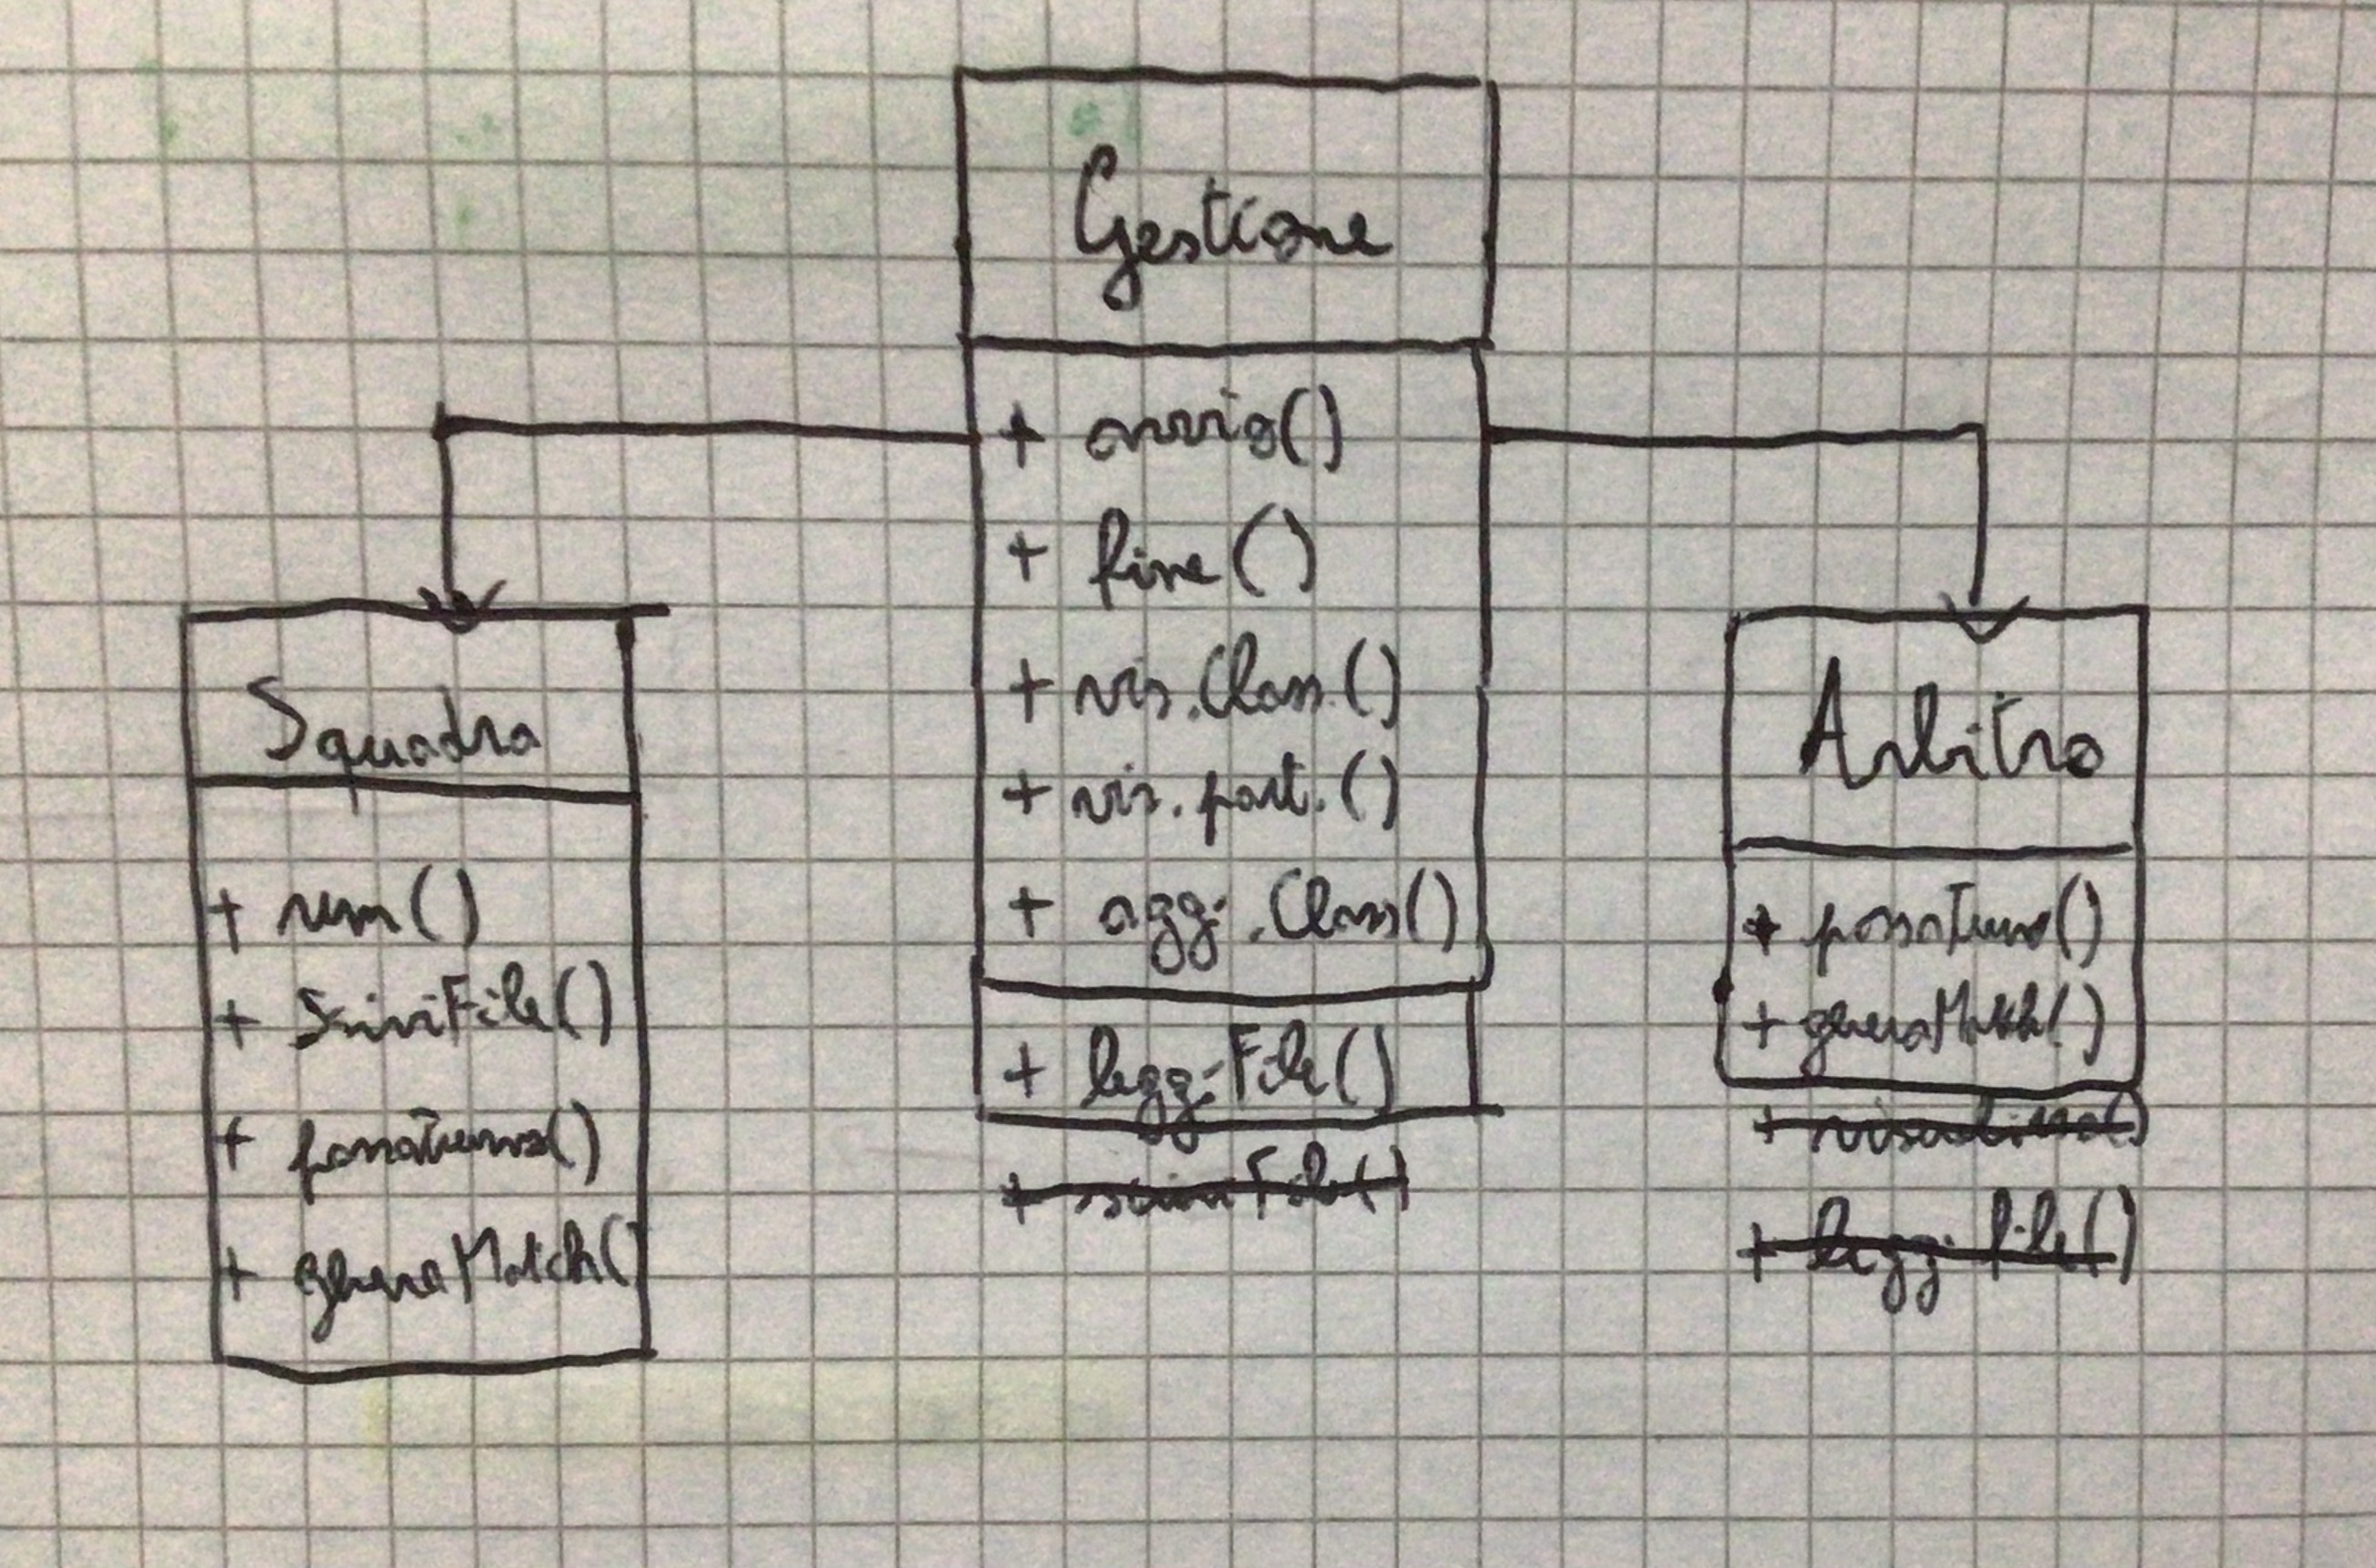 Gestione
+ avvio()
+ fine()
+ vis.Class.()
+ vis.part.()
+ agg.Class()
+ leggiFile()
+ scriviFile()
Squadra
+ rem()
+ ScriviFile()
+ passaTurno()
+ generaMatch()
Arbitro
+ passaTurno()
+ generaMatch()
+ visualizza()
+ leggi file()